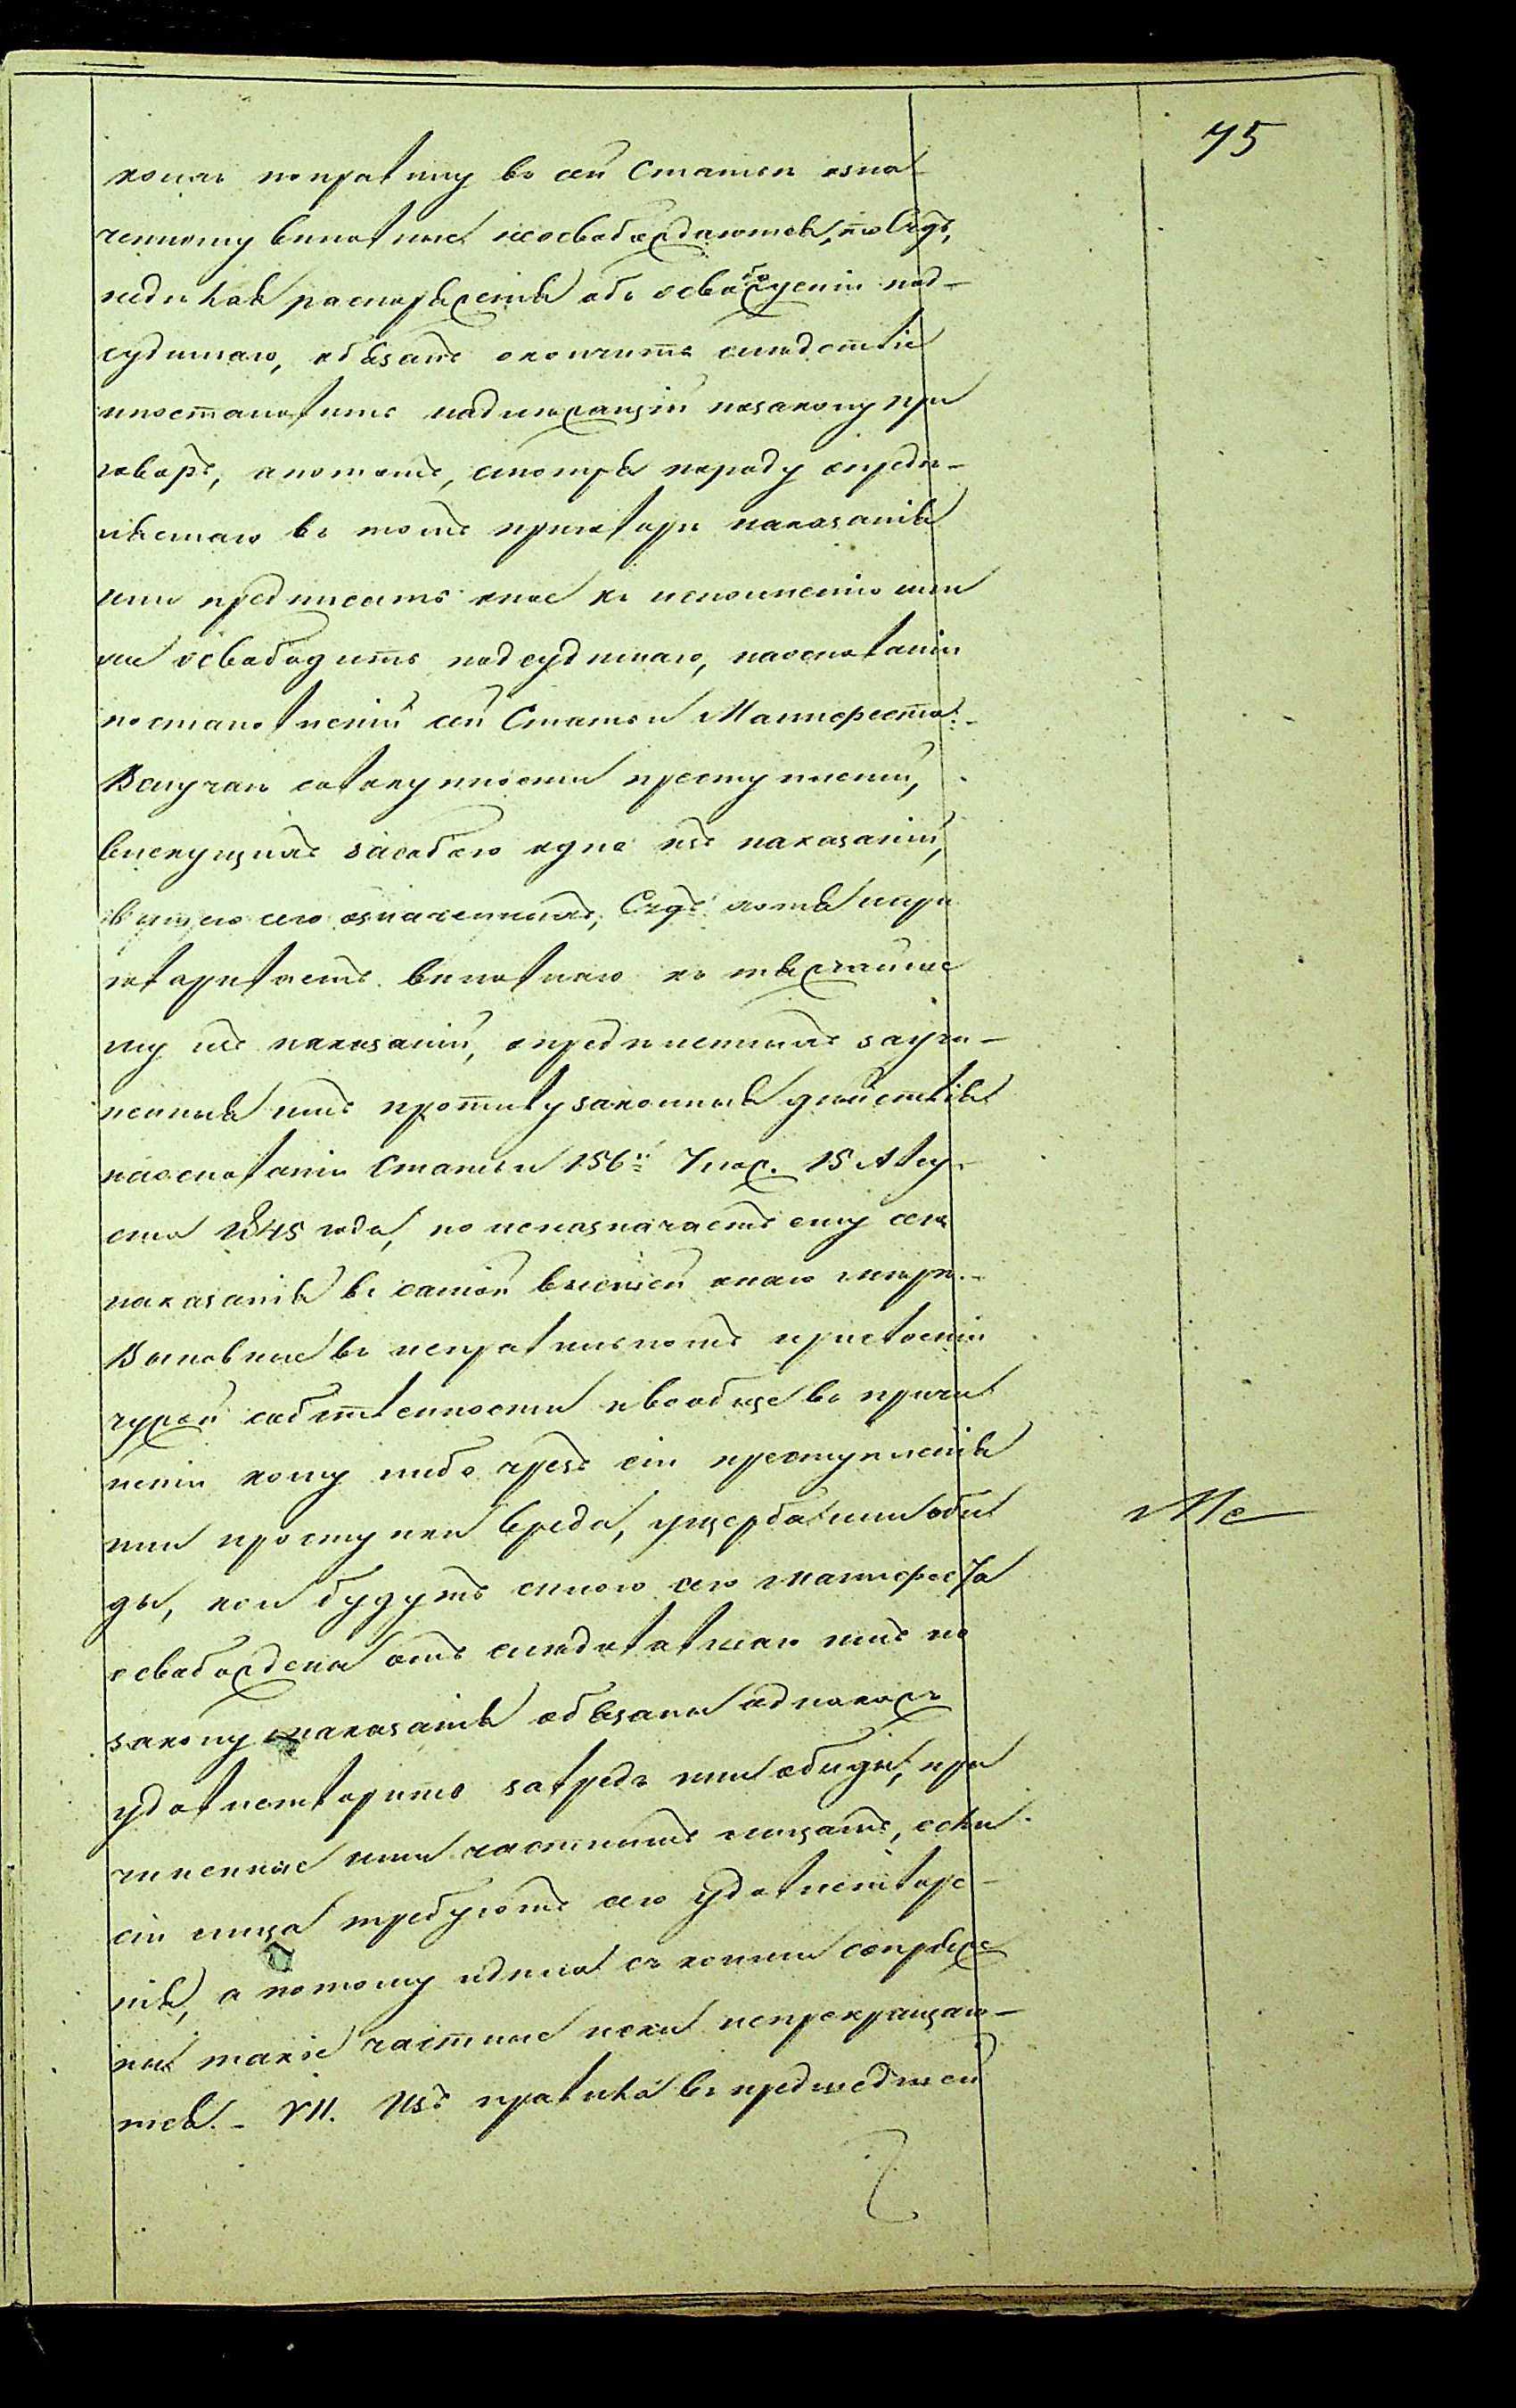 75
коихъ по правилу въ сей Статьи озна
ченному виновные неосвобождаются, но Судъ,
недѣлая распоряженія объ освобожденіи под-
судимаго, обязанъ окончить слѣдствіе
и постановить надлежащій по закону при
говоръ, а потомъ, смотря по роду опредѣ-
ляемаго въ томъ приговорѣ наказанія
или предписать оное къ исполненію или
же освободить подсудимаго, на основаніи
постановленій сей Статьи Манифеста.-
В случаѣ совокупности преступленій,
влекущихъ за собою одно изъ наказаній,
въ силу сего означенныхъ, Судъ хотя и при
говариваетъ виновнаго къ тягчайше
му изъ наказаній, опредѣленныхъ за учи-
ненныя имъ противузаконныя дѣйствія
на основаніи Статьи 156й Улож. 15 Авгу-
ста 1845 года, но не назначаетъ ему сего
наказанія въ самой высшей онаго мѣрѣ.-
Виновные въ неправильномъ присвоеніи
чужой собственности и вообще въ причи
неніи кому либо чрезъ сіи преступленія
или проступки вреда, ущерба или оби
ды, кои будутъ силою сего манифеста
освобождены отъ слѣдовавшаго имъ по
закону наказанія обязаны однакожъ
удовлетворить за вредъ или обиды, при
чиненные ими частнымъ лицамъ, если
сіи лица требуютъ сего удовлетворе-
нія, а потому и дѣла съ коими сопряже
ны такіе частные иски непрекращаю-
тся. - VII. Изъ правила въ предшедшей
Ме